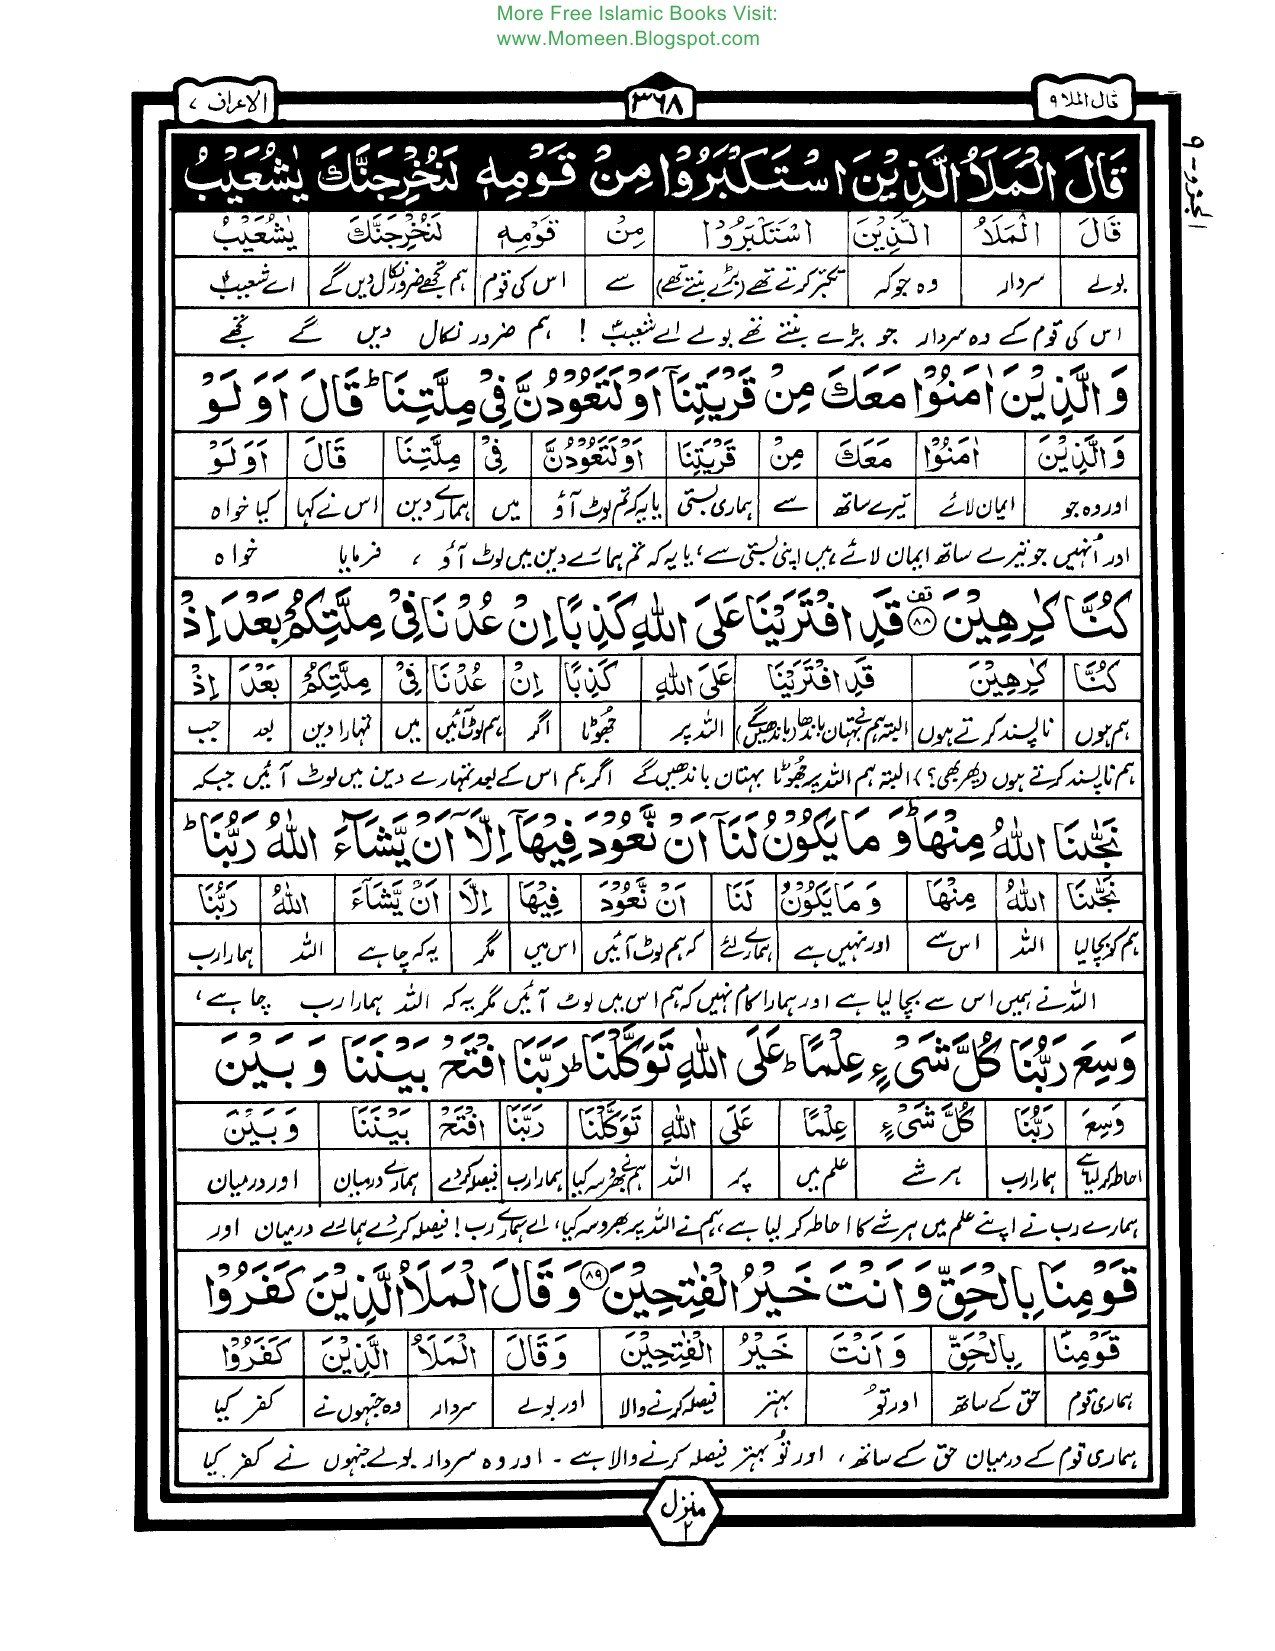 More Free Islamic Books Visit:
www.Momeen.Blogspot.com
قال الملا ٩
٣٦٨
الاعراف ٧
الجزء - ٩
قَالَ الْمَلَاُ الَّذِيْنَ اسْتَكْبَرُوْا مِنْ قَوْمِهٖ لَنُخْرِجَنَّكَ يٰشُعَيْبُ
قَالَ الْمَلَاُ الَّذِيْنَ اسْتَكْبَرُوْا مِنْ قَوْمِهٖ لَنُخْرِجَنَّكَ يٰشُعَيْبُ
بولے سردار وہ جو کہ تکبر کرتے تھے (بڑے بنتے تھے) سے اس کی قوم ہم تجھے ضرور نکال دیں گے اے شعیبؑ
اس کی قوم کے وہ سردار جو بڑے بنتے تھے بولے اے شعیبؑ ! ہم ضرور نکال دیں گے تجھے
وَالَّذِيْنَ اٰمَنُوْا مَعَكَ مِنْ قَرْيَتِنَآ اَوْ لَتَعُوْدُنَّ فِيْ مِلَّتِنَا ؕ قَالَ اَوَلَوْ
وَالَّذِيْنَ اٰمَنُوْا مَعَكَ مِنْ قَرْيَتِنَا اَوْ لَتَعُوْدُنَّ فِيْ مِلَّتِنَا قَالَ اَوَلَوْ
اور وہ جو ایمان لائے تیرے ساتھ سے ہماری بستی یا یہ کہ تم لوٹ آؤ میں ہمارے دین اس نے کہا کیا خواہ
اور اُنہیں جو تیرے ساتھ ایمان لائے ہیں اپنی بستی سے، یا یہ کہ تم ہمارے دین میں لوٹ آؤ ، فرمایا خواہ
كُنَّا كٰرِهِيْنَ ۟ قف ٨٨ قَدِ افْتَرَيْنَا عَلَى اللّٰهِ كَذِبًا اِنْ عُدْنَا فِيْ مِلَّتِكُمْ بَعْدَ اِذْ
كُنَّا كٰرِهِيْنَ قَدِ افْتَرَيْنَا عَلَى اللّٰهِ كَذِبًا اِنْ عُدْنَا فِيْ مِلَّتِكُمْ بَعْدَ اِذْ
ہم ہوں ناپسند کرتے ہوں البتہ ہم نے بہتان باندھا (باندھیں گے) اللہ پر جھوٹا اگر ہم لوٹ آئیں میں تمہارا دین بعد جب
ہم ناپسند کرتے ہوں (پھر بھی؟) البتہ ہم اللہ پر جھوٹا بہتان باندھیں گے اگر ہم اس کے بعد تمہارے دین میں لوٹ آئیں جبکہ
نَجّٰىنَا اللّٰهُ مِنْهَا ؕ وَ مَا يَكُوْنُ لَنَآ اَنْ نَّعُوْدَ فِيْهَآ اِلَّآ اَنْ يَّشَآءَ اللّٰهُ رَبُّنَا ؕ
نَجّٰىنَا اللّٰهُ مِنْهَا وَ مَا يَكُوْنُ لَنَا اَنْ نَّعُوْدَ فِيْهَا اِلَّا اَنْ يَّشَآءَ اللّٰهُ رَبُّنَا
ہم کو بچا لیا اللہ اس سے اور نہیں ہے ہمارے لئے کہ ہم لوٹ آئیں اس میں مگر یہ کہ چاہے اللہ ہمارا رب
اللہ نے ہمیں اس سے بچا لیا ہے اور ہمارا کام نہیں کہ ہم اس میں لوٹ آئیں مگر یہ کہ اللہ ہمارا رب چاہے،
وَسِعَ رَبُّنَا كُلَّ شَيْءٍ عِلْمًا ؕ عَلَى اللّٰهِ تَوَكَّلْنَا ؕ رَبَّنَا افْتَحْ بَيْنَنَا وَ بَيْنَ
وَسِعَ رَبُّنَا كُلَّ شَيْءٍ عِلْمًا عَلَى اللّٰهِ تَوَكَّلْنَا رَبَّنَا افْتَحْ بَيْنَنَا وَ بَيْنَ
احاطہ کر لیا ہے ہمارا رب ہر شے علم میں پر اللہ ہم نے بھروسہ کیا ہمارا رب فیصلہ کر دے ہمارے درمیان اور درمیان
ہمارے رب نے اپنے علم میں ہر شے کا احاطہ کر لیا ہے، ہم نے اللہ پر بھروسہ کیا، اے ہمارے رب! فیصلہ کر دے ہمارے درمیان اور
قَوْمِنَا بِالْحَقِّ وَ اَنْتَ خَيْرُ الْفٰتِحِيْنَ ٨٩ وَ قَالَ الْمَلَاُ الَّذِيْنَ كَفَرُوْا
قَوْمِنَا بِالْحَقِّ وَ اَنْتَ خَيْرُ الْفٰتِحِيْنَ وَ قَالَ الْمَلَاُ الَّذِيْنَ كَفَرُوْا
ہماری قوم حق کے ساتھ اور تو بہتر فیصلہ کرنے والا اور بولے سردار وہ جنہوں نے کفر کیا
ہماری قوم کے درمیان حق کے ساتھ، اور تُو بہتر فیصلہ کرنے والا ہے - اور وہ سردار بولے جنہوں نے کفر کیا
منزل ٢